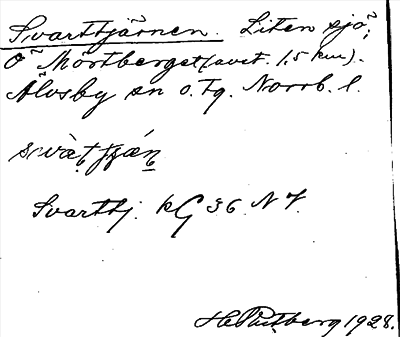 Svarttjärnen. Liten sjö,
O Mörtberget (avst. 1,5 km).
Älvsby sn o. tg. Norrb. l.
Svarttj. kG 36 N 7.
1928.